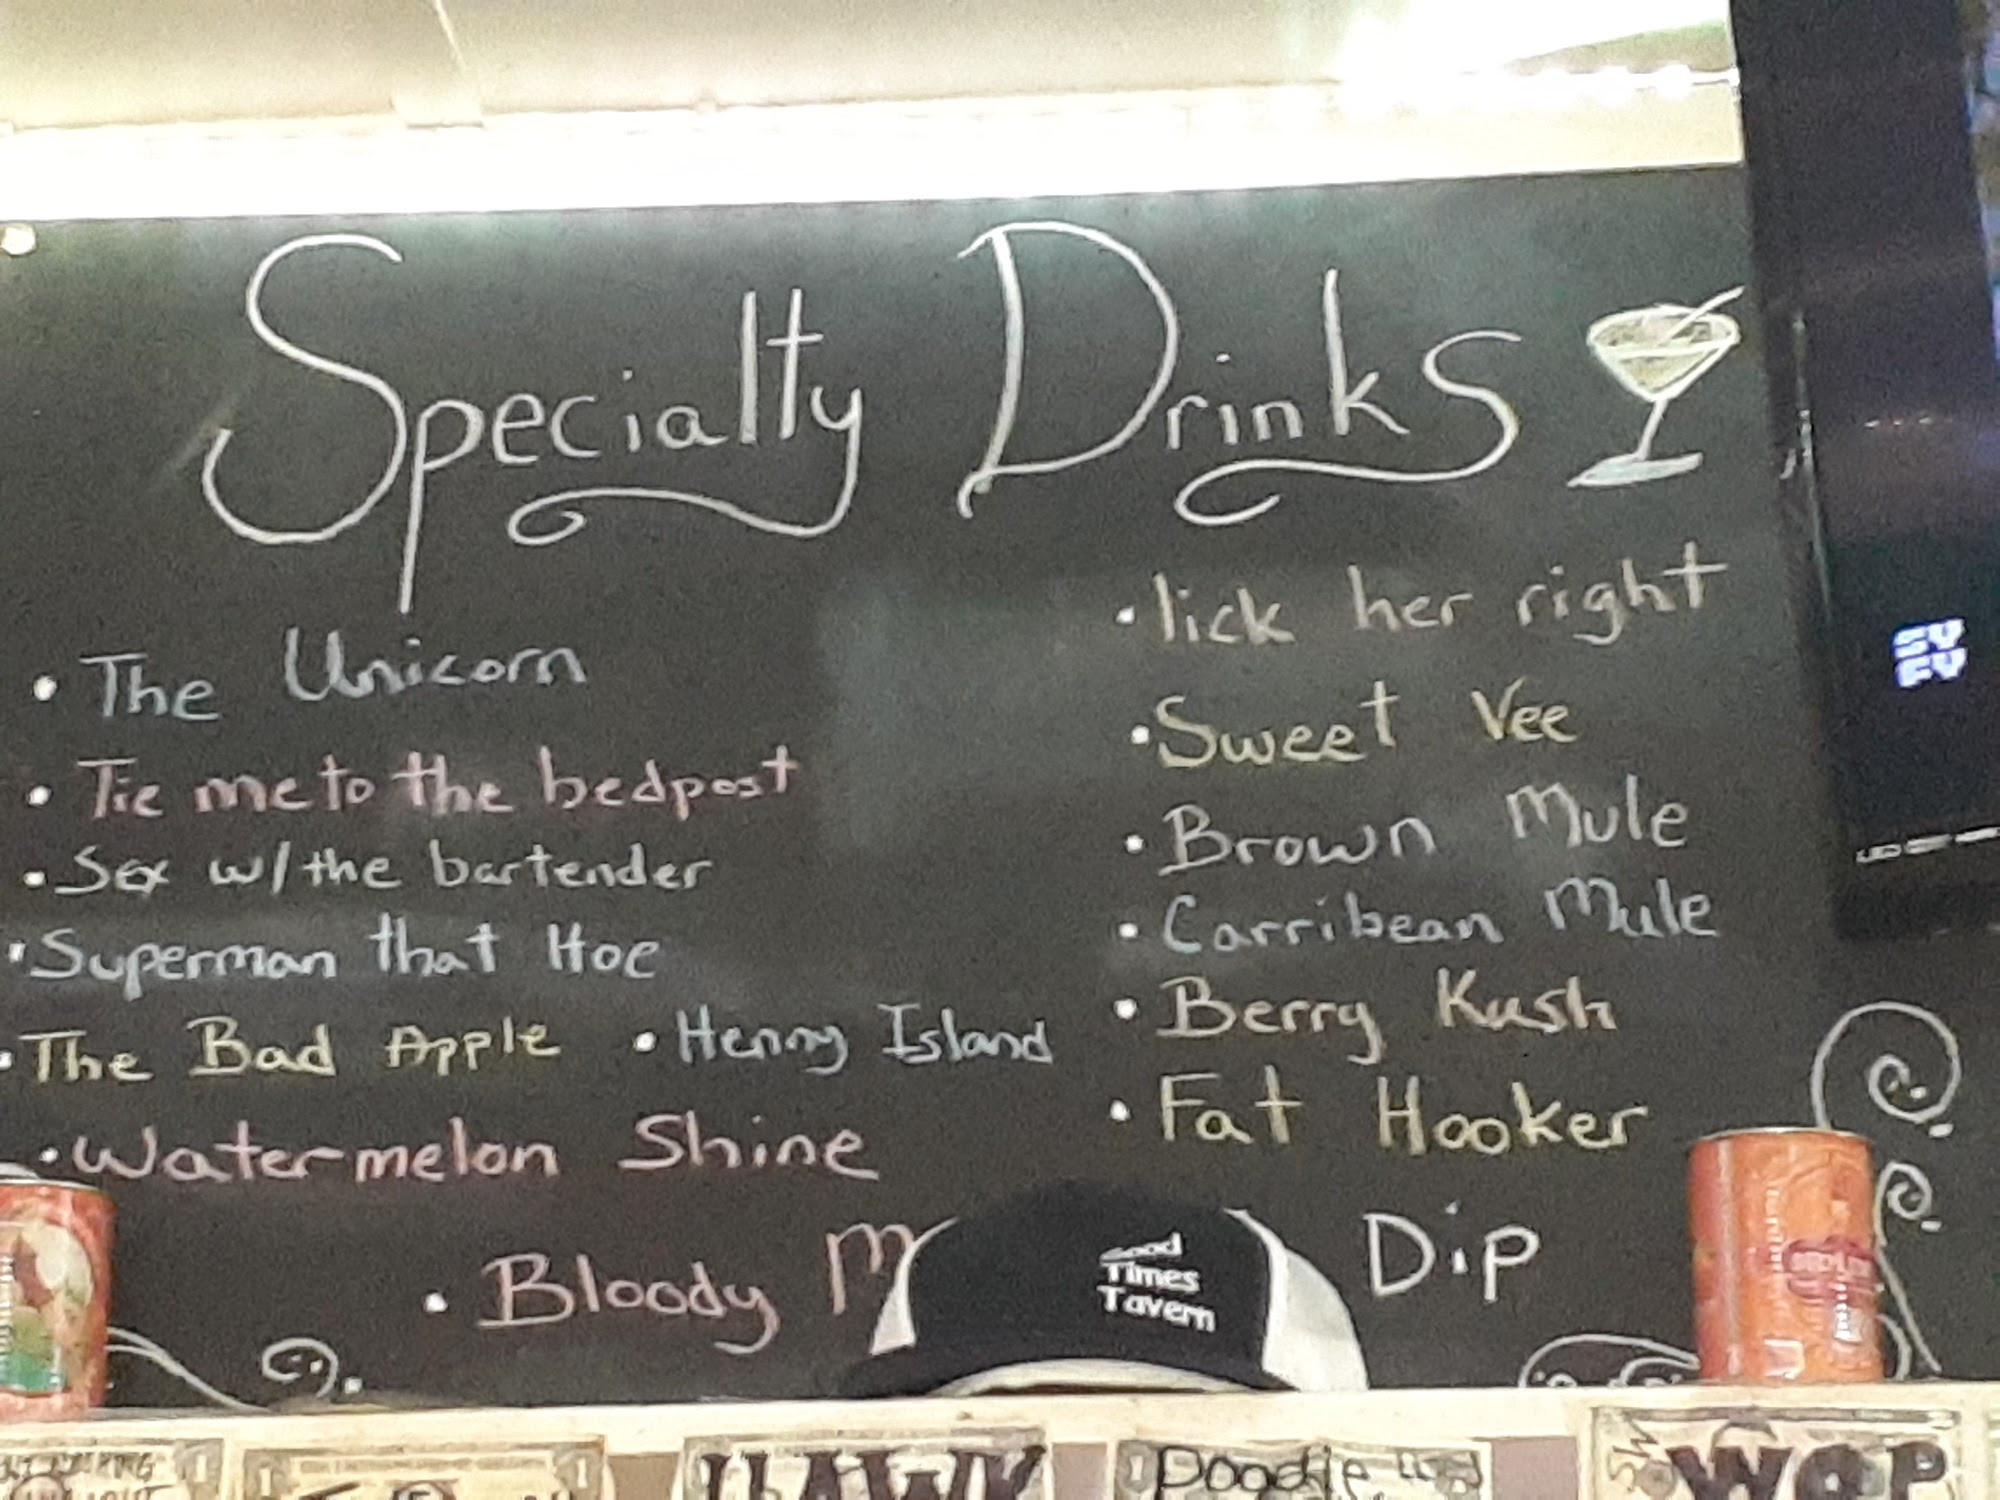 Specialty Drinks
• The Unicorn
• Tie me to the bedpost
• Sex w/ the bartender
• Superman that Hoe
• The Bad Apple
• Henny Island
• Watermelon Shine
• lick her right
• Sweet Vee
• Brown Mule
• Carribean Mule
• Berry Kush
• Fat Hooker
• Bloody M
Dip
Good
Times
Tavern
HAWK
Doodle
WOP